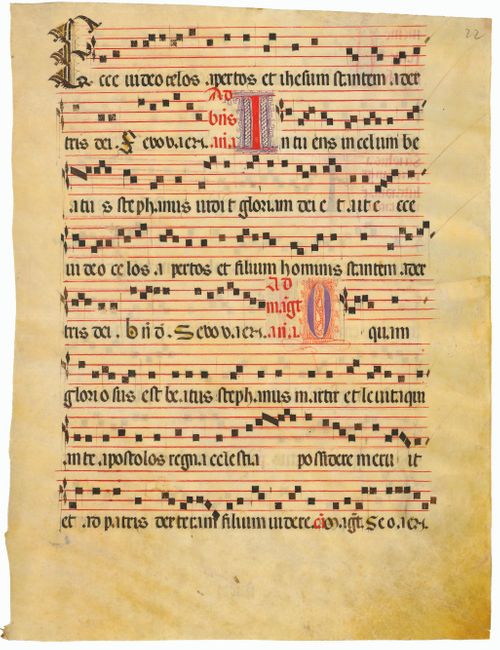 22
Ecce uideo celos apertos et ihesum stantem a dex
tris dei. SeuouaeN. Ad bn̄s an̄a. Intuens in celum be
atus stephanus uidit gloriam dei et ait ecce
uideo celos apertos et filium hominis stantem a dex
tris dei. bn̄d. SeuouaeN. Ad mag̅t an̄a. O quam
gloriosus est beatus stephanus martir et leuita qui
ante apostolos regna celestia possidere meruit
et ad patris dexteram filium uidere. mag̅t. Seoaen.